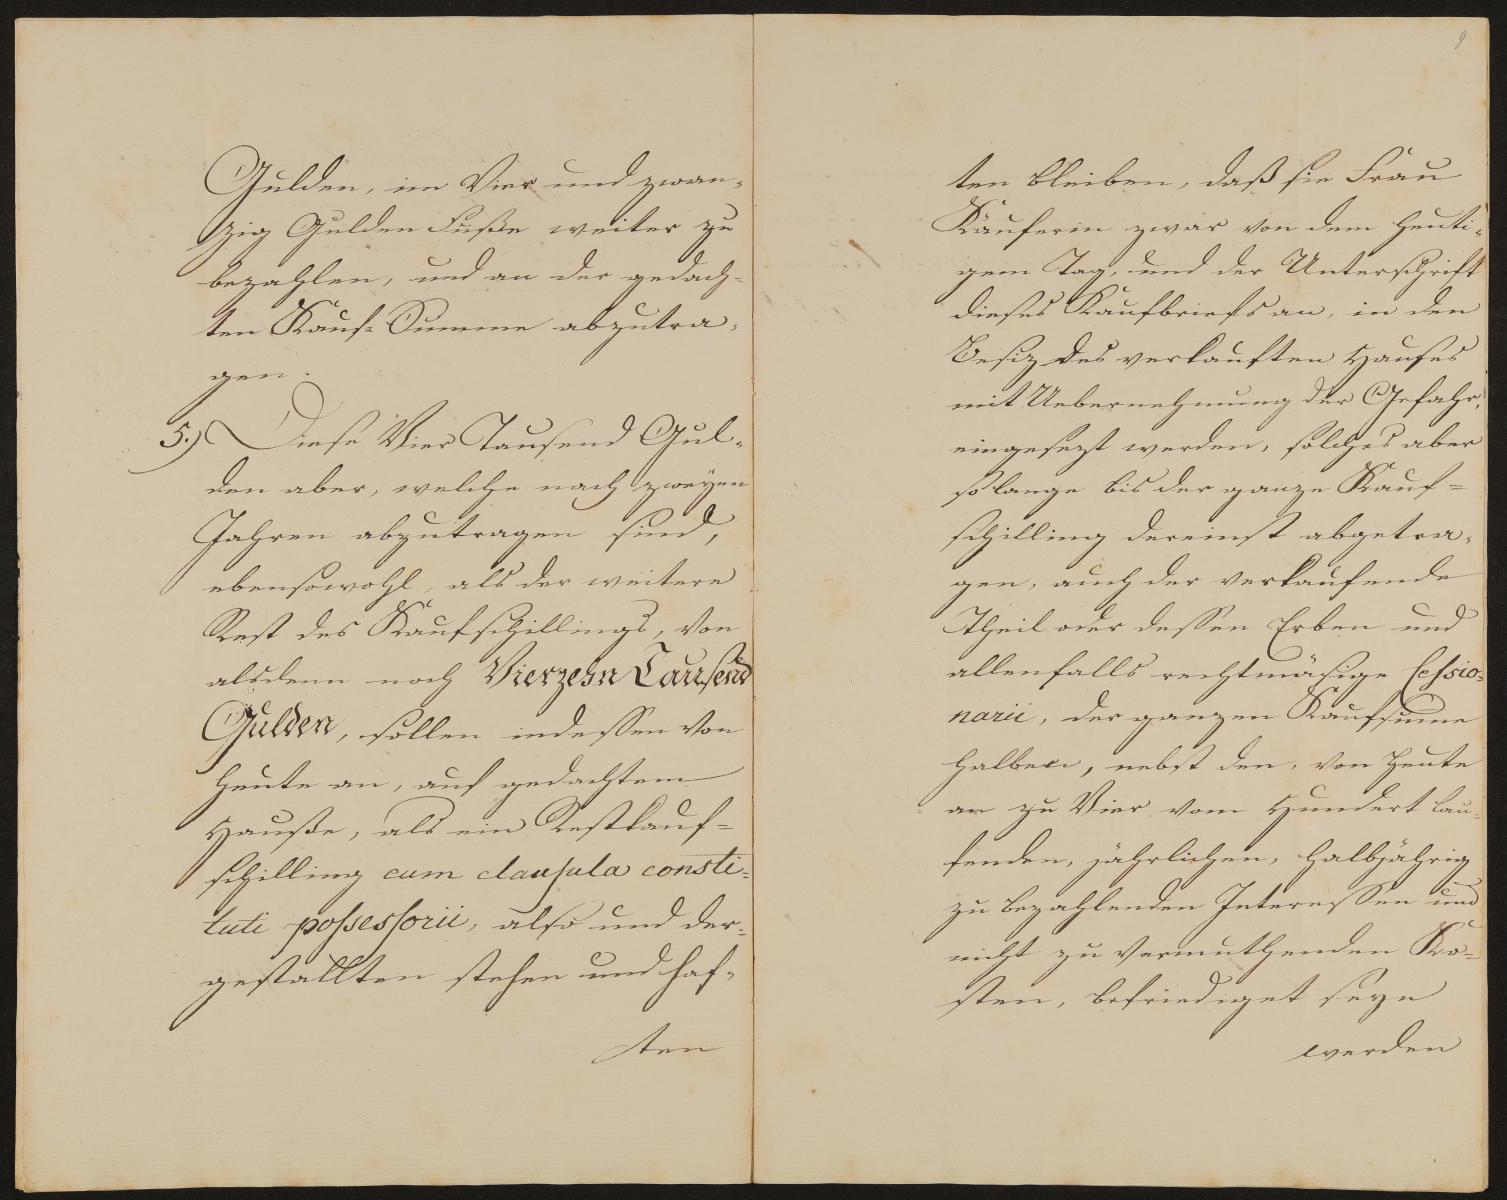 Gulden, im Vier und zwan-
zig Gulden Fuße weiter zu
bezahlen, und an der gedach-
ten Kauf-Summe abzutra-
gen.
5.) Diese Vier Tausend Gul-
den aber, welche nach zweyen
Jahren abzutragen sind,
ebensowohl, als der weitere
Rest des Kaufschillings, von
alsdenn noch Vierzehn Tausend
Gulden, sollen indessen von
heute an, auf gedachtem
Hauße, als ein Restkauf-
schilling cum clausula consti-
tuti possessorii, also und der-
gestallten stehen und haf-
ten
9
ten bleiben, daß sie Frau
Käuferin zwar von dem heuti-
gem Tag, und der Unterschrift
dieses Kaufbriefs an, in den
Besiz des verkauften Hauses
mit Uebernehmung der Gefahr,
eingesezt werden, solches aber
so lange bis der ganze Kauf-
schilling dereinst abgetra-
gen, auch der verkaufende
Theil oder dessen Erben und
allenfalls rechtmäsige Cessio-
narii, der ganzen Kaufsumme
halben, nebst den, von heute
an zu Vier vom Hundert lau-
fenden, jährlichen, halbjährig
zu bezahlenden Interessen und
nicht zu vermuthenden Ko-
sten, befriediget seyn
werden